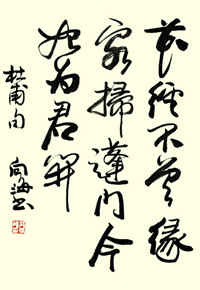 花徑不曾緣
客掃蓬门今
始为君開
杜甫句